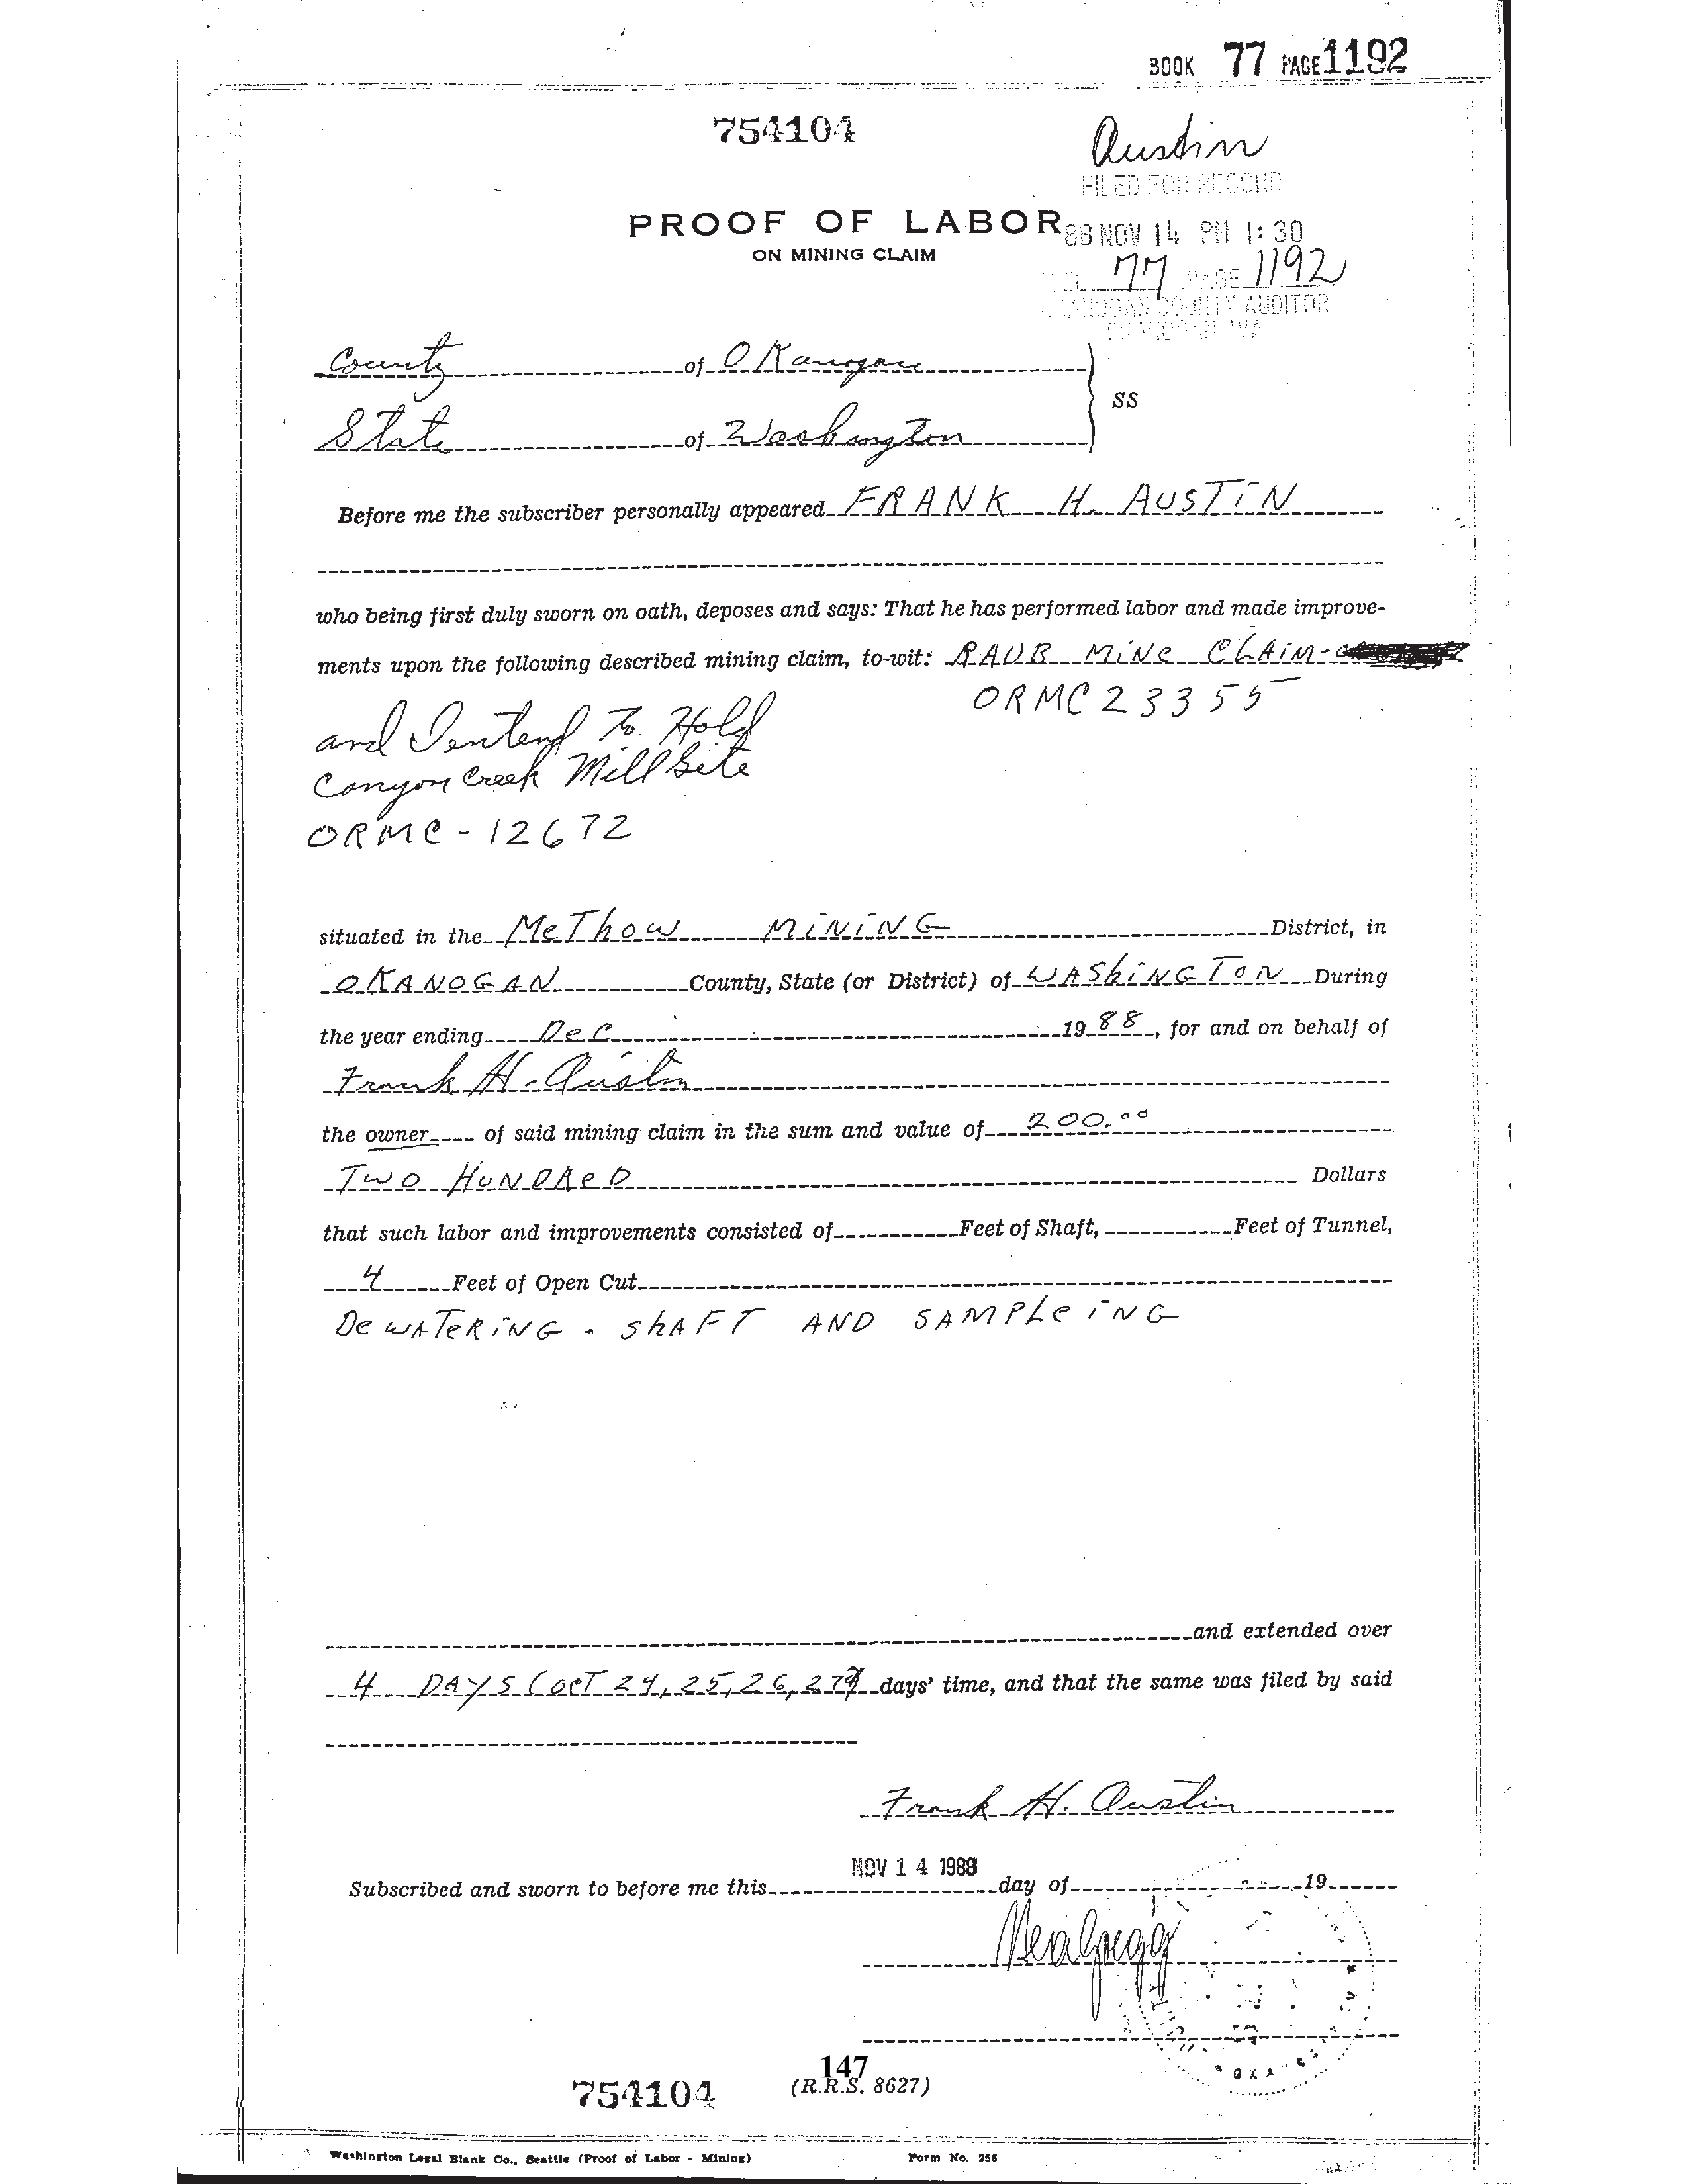 BOOK 77 PAGE 1192
754104
Austin
FILED FOR RECORD
PROOF OF LABOR
88 NOV 14 PM 1:30
ON MINING CLAIM
77 PAGE 1192
COUNTY AUDITOR
County of OKanogan
SS
State of Washington
Before me the subscriber personally appeared FRANK H. AUSTIN
who being first duly sworn on oath, deposes and says: That he has performed labor and made improve-
ments upon the following described mining claim, to-wit: RAUB MINE CLAIM-
ORMC 23355
and Ientend To Hold
Canyon Creek Mill Site
ORMC - 12672
situated in the MeThow MINING District, in
OKANOGAN County, State (or District) of WAShINGTON During
the year ending Dec 1988, for and on behalf of
Frank H. Austin
the owner of said mining claim in the sum and value of 200.00
TWO HUNDReD Dollars
that such labor and improvements consisted of Feet of Shaft, Feet of Tunnel,
4 Feet of Open Cut
DeWATeRING - ShAFT AND SAMPLeING
and extended over
4 DAYS (OCT 24, 25, 26, 27) days' time, and that the same was filed by said
Frank H. Austin
NOV 14 1988
Subscribed and sworn to before me this day of 19
147
754104 (R.R.S. 8627)
Washington Legal Blank Co., Seattle (Proof of Labor - Mining) Form No. 256